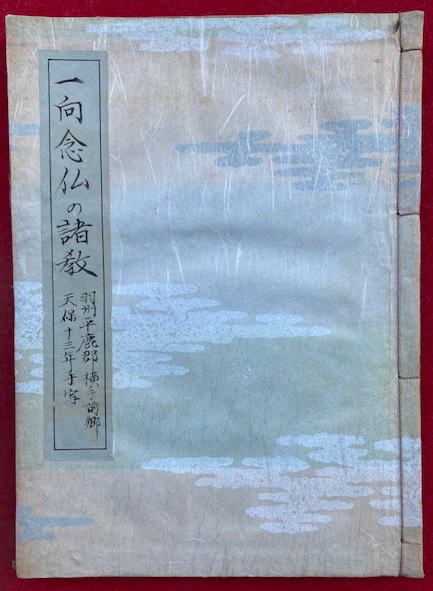 一向念仏の諸教
羽州平鹿郡 横手前郷
天保十三年手写